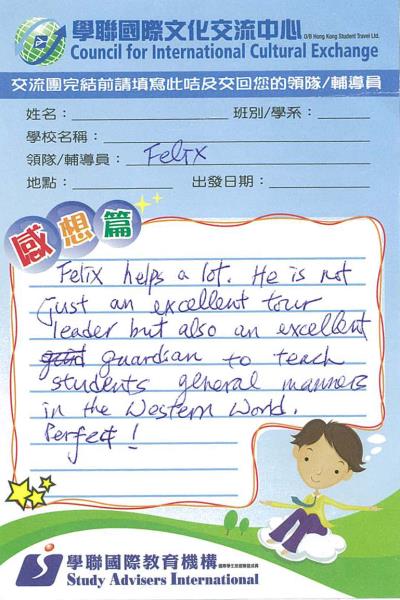 學聯國際文化交流中心 O/B Hong Kong Student Travel Ltd.
Council for International Cultural Exchange
交流團完結前請填寫此咭及交回您的領隊/輔導員
姓名： 班別/學系：
學校名稱：
領隊/輔導員： Felix
地點： 出發日期：
感想篇
Felix helps a lot. He is not
just an excellent tour
leader but also an excellent
guardian to teach
students general manners
in the Western World.
Perfect!
學聯國際教育機構
Study Advisers International